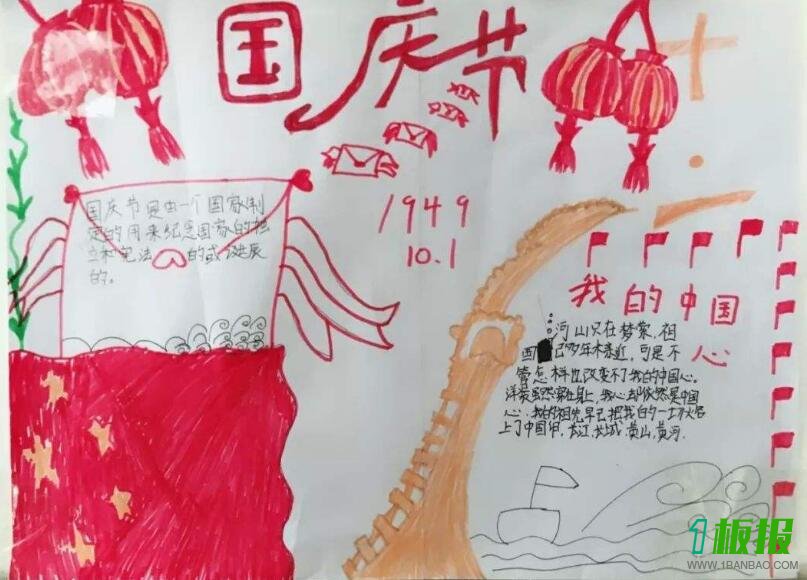 国庆节
十·一
1949
10.1
国庆节是由一个国家制
定的用来纪念国家的
的。
我的中国
心
河山只在梦萦,祖
国已多年未亲近,可是不
管怎样也改变不了我的中国心。
洋装虽然穿在身上,我心却依然是中国
心,我的祖先早已把我的一切烙
上了中国印,长江,长城,黄山,黄河.
1板报
WWW.1BANBAO.COM